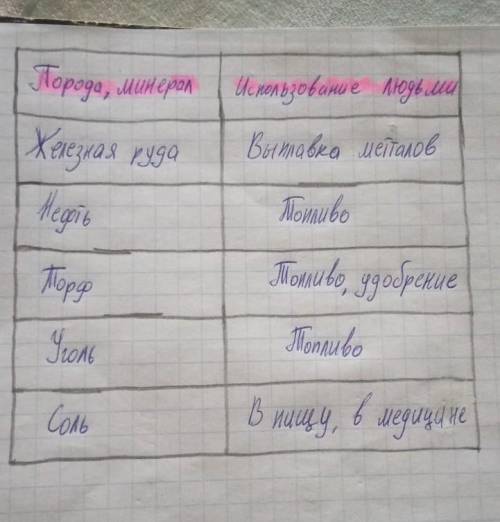 Порода, минерал Использование людьми
Железная руда Выплавка металов
Нефть Топливо
Торф Топливо, удобрение
Уголь Топливо
Соль В пищу, в медицине